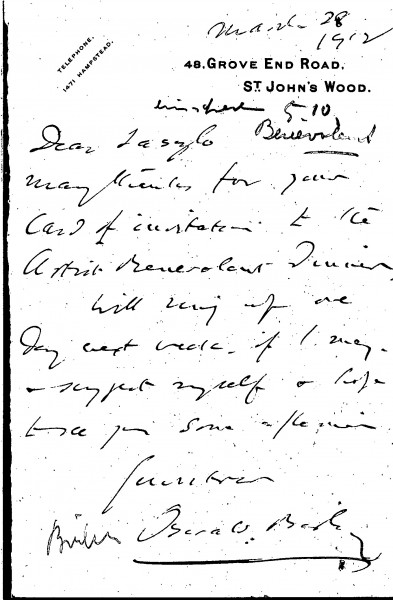 March 28
1912
TELEPHONE.
1471 HAMPSTEAD.
48, GROVE END ROAD,
ST JOHN'S WOOD.
5.10
Benevolent
Dear Laszlo
Many thanks for your
Card of invitation to the
Artists Benevolent Dinner
Will ring up one
day next week, if I may
& suggest myself & hope
to see you some afternoon
Yours ever
Oswald Birley
Birley